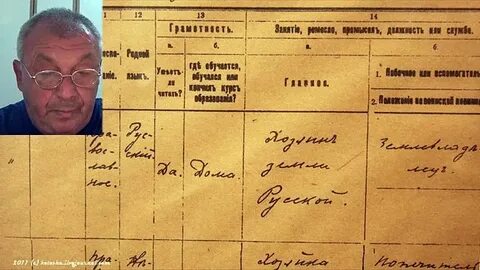 12 13 14
Грамотность. Занятіе, ремесло, промыселъ, должность или служба.
а. б. а. б.
Родной
языкъ.
Умѣетъ-
ли
читать?
гдѣ обучается,
обучался или
кончилъ курсъ
образованія?
Главное.
1. Побочное или вспомогател
2. Положеніе по воинской повинно
ра-
вос-
лав-
ное.
Рус-
скій.
Да. Дома.
Хозяинъ
земли
Русской.
Землевладѣ-
лецъ.
пра-
Хозяйка